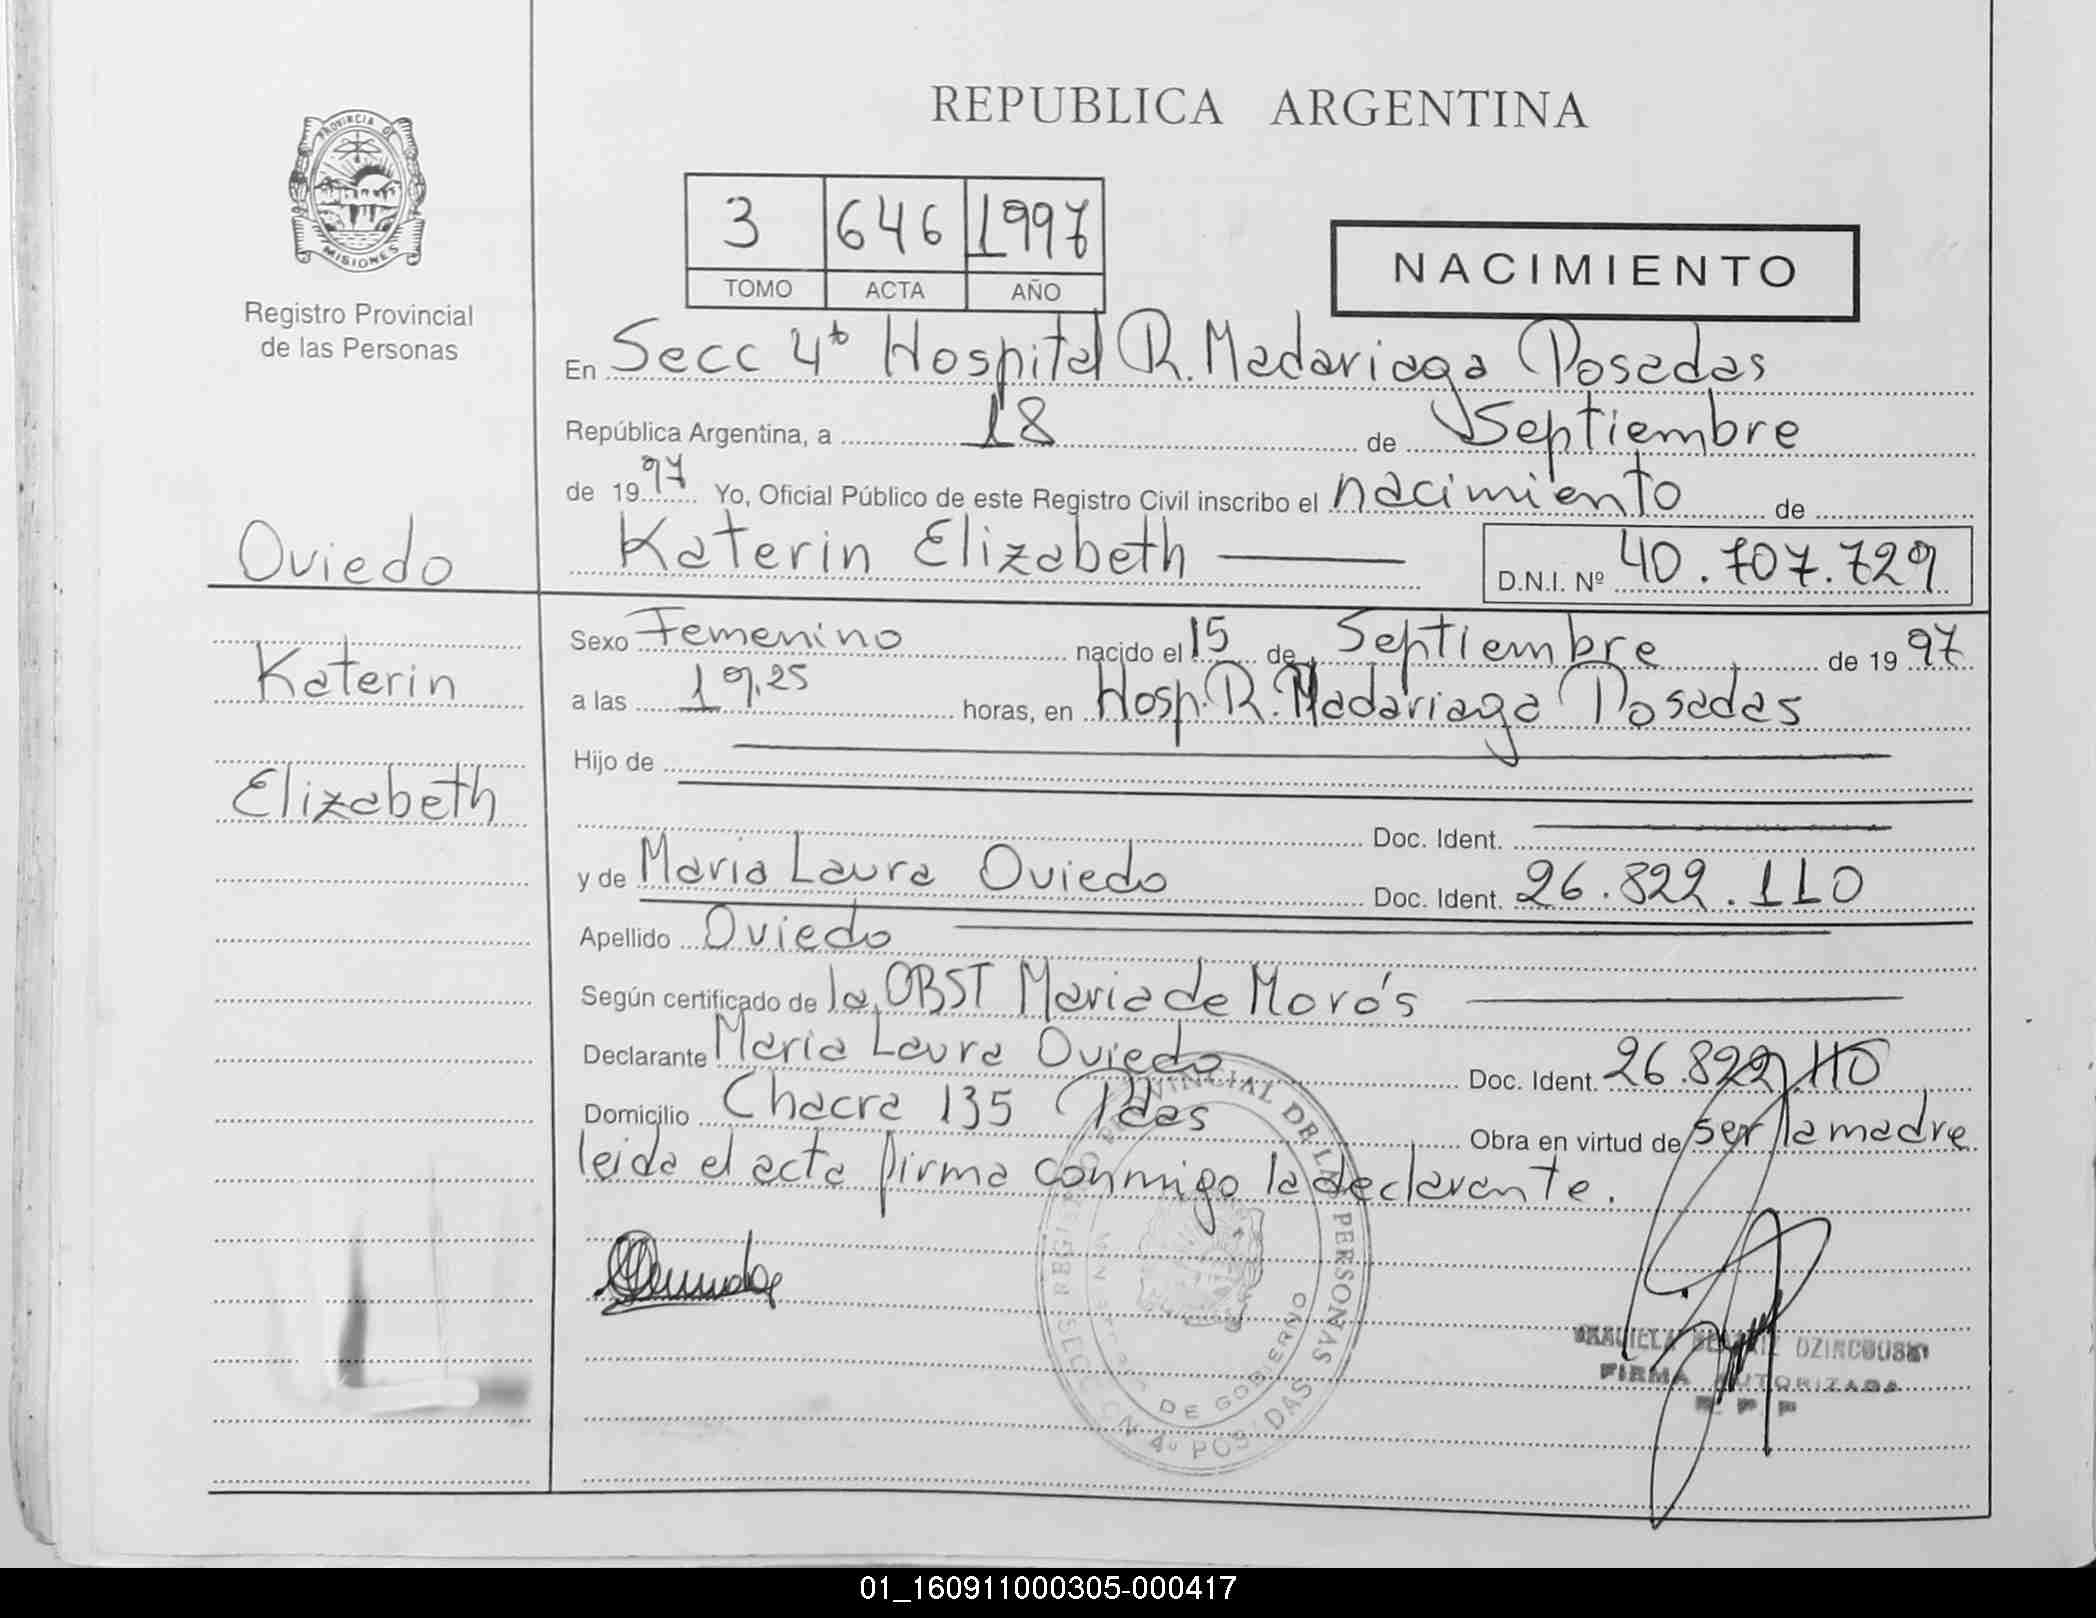 REPUBLICA ARGENTINA
PROVINCIA DE
MISIONES
Registro Provincial
de las Personas
3 646 1997
TOMO ACTA AÑO
NACIMIENTO
En Secc 4ta Hospital R. Madariaga Posadas
República Argentina, a 18 de Septiembre
de 1997 Yo, Oficial Público de este Registro Civil inscribo el nacimiento de
Oviedo
Katerin Elizabeth
D.N.I. Nº 40.707.729
Katerin
Elizabeth
Sexo Femenino nacido el 15 de Septiembre de 1997
a las 19,25 horas, en Hosp. R. Madariaga Posadas
Hijo de
Doc. Ident.
y de Maria Laura Oviedo Doc. Ident. 26.822.110
Apellido Oviedo
Según certificado de la OBST Maria de Morós
Declarante Maria Laura Oviedo Doc. Ident. 26.822.110
Domicilio Chacra 135 Pdas Obra en virtud de ser la madre
leida el acta firma conmigo la declarante.
REGISTRO PROVINCIAL DE LAS PERSONAS
DE GOBIERNO
SECCION 4ª POSADAS
FIRMA AUTORIZADA
01_160911000305-000417